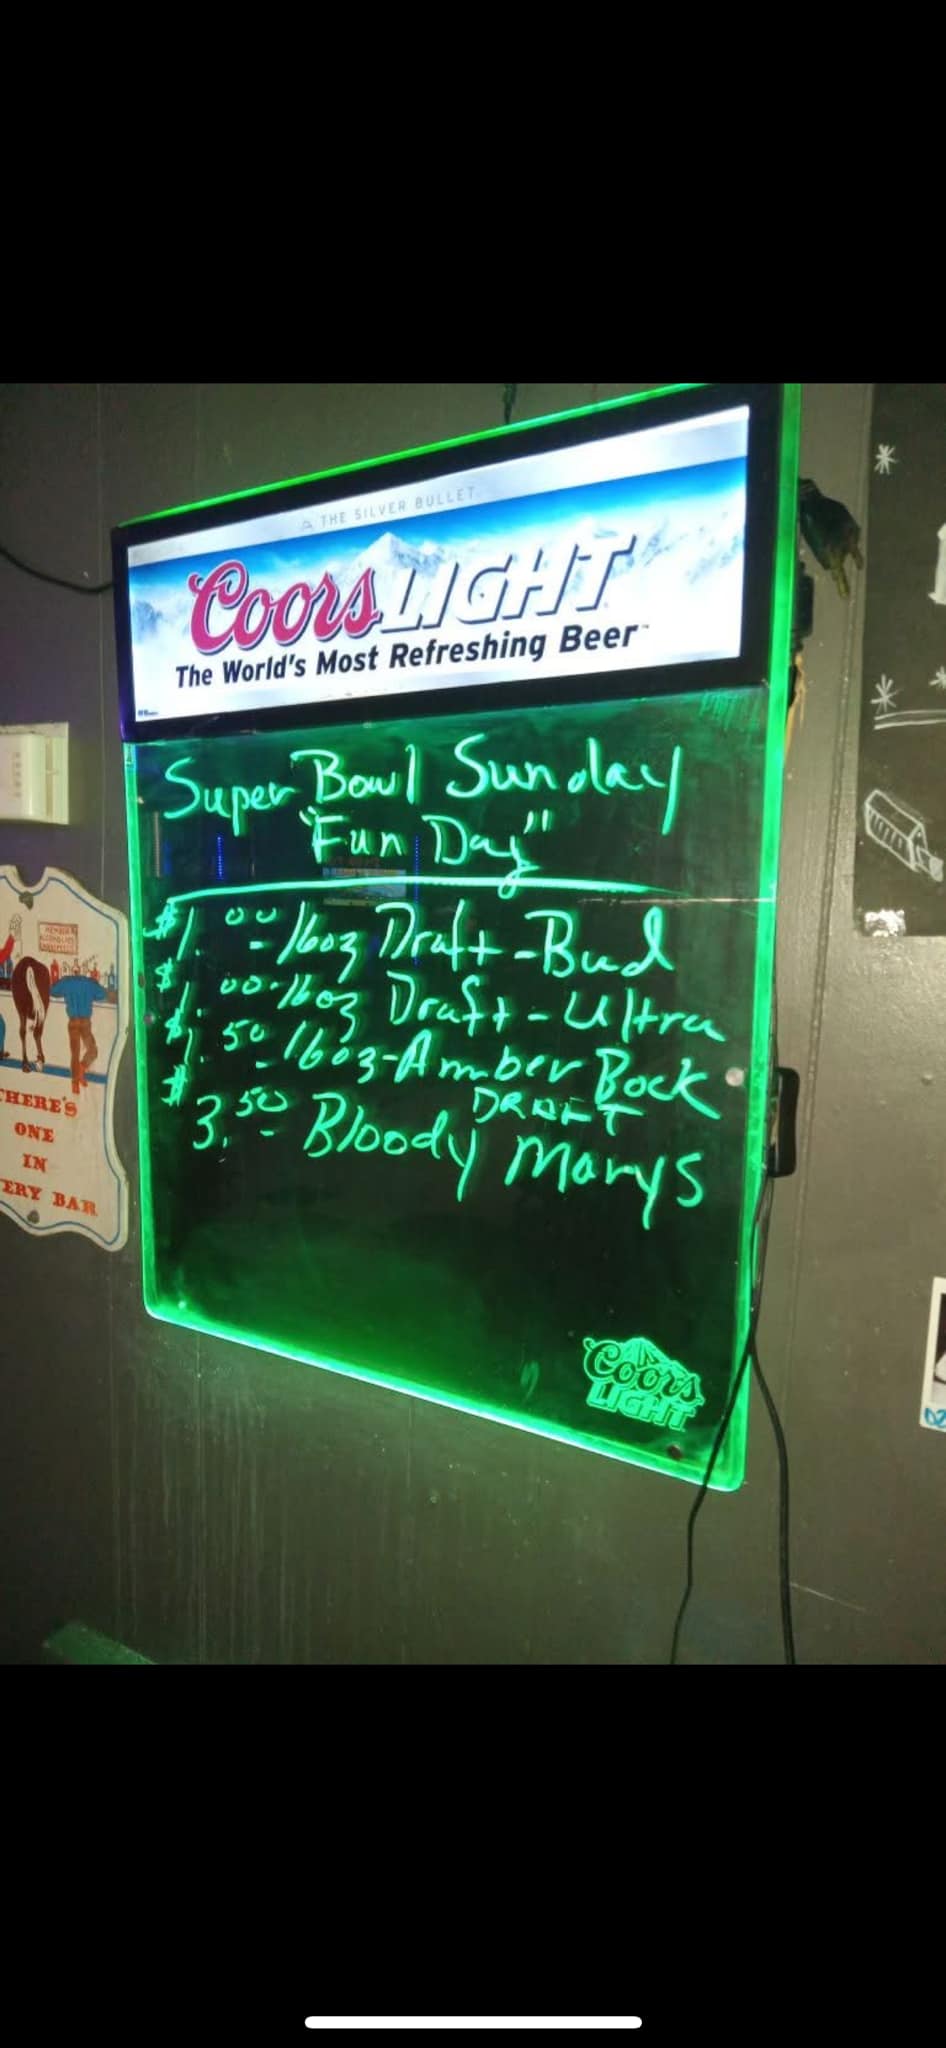 THE SILVER BULLET
Coors LIGHT
The World's Most Refreshing Beer™
Super Bowl Sunday
"Fun Day"
$1.00 - 16oz Draft - Bud
$1.00 - 16oz Draft - Ultra
$1.50 - 16oz - Amber Bock
DRAFT
$3.50 - Bloody Marys
Coors
LIGHT
HERE'S
ONE
IN
ERY BAR